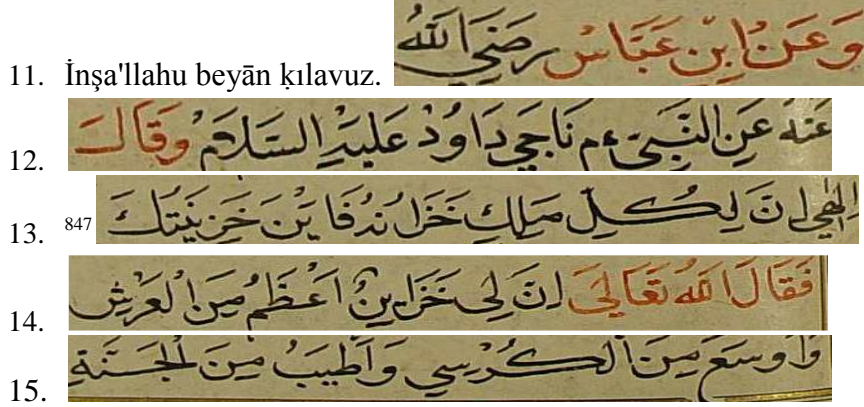 11. İnşa'llahu beyān ḳılavuz. وَعَنْ ابْنِ عَبَّاسْ رَضِيَ اللّٰهُ
12. عَنْهُ عَنِ النَّبِيّ ءم نَاجَى دَاوُدْ عَلَيْهِ السَّلَامْ وَقَالَ
13. 847 اِلٰهِي اِنَّ لِكُلِّ مَلِكٍ خَزَائِنُ فَاَيْنَ خَزِينَتُكَ
14. فَقَالَ اللّٰهُ تَعَالَى اِنَّ لِى خَزَايِنٌ اَعْظَمُ مِنَ الْعَرْشِ
15. وَاَوْسَعَ مِنَ الْكُرْسِي وَاَطْيَبُ مِنَ الْجَنَّةِ